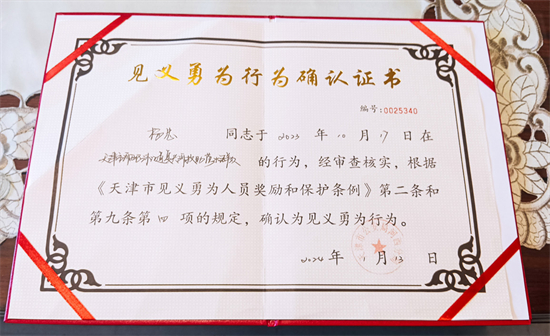 见义勇为行为确认证书
编号:0025340
同志于2023年10月17日在
的行为，经审查核实，根据
《天津市见义勇为人员奖励和保护条例》第二条和
第九条第四项的规定，确认为见义勇为行为。
2024年1月13日